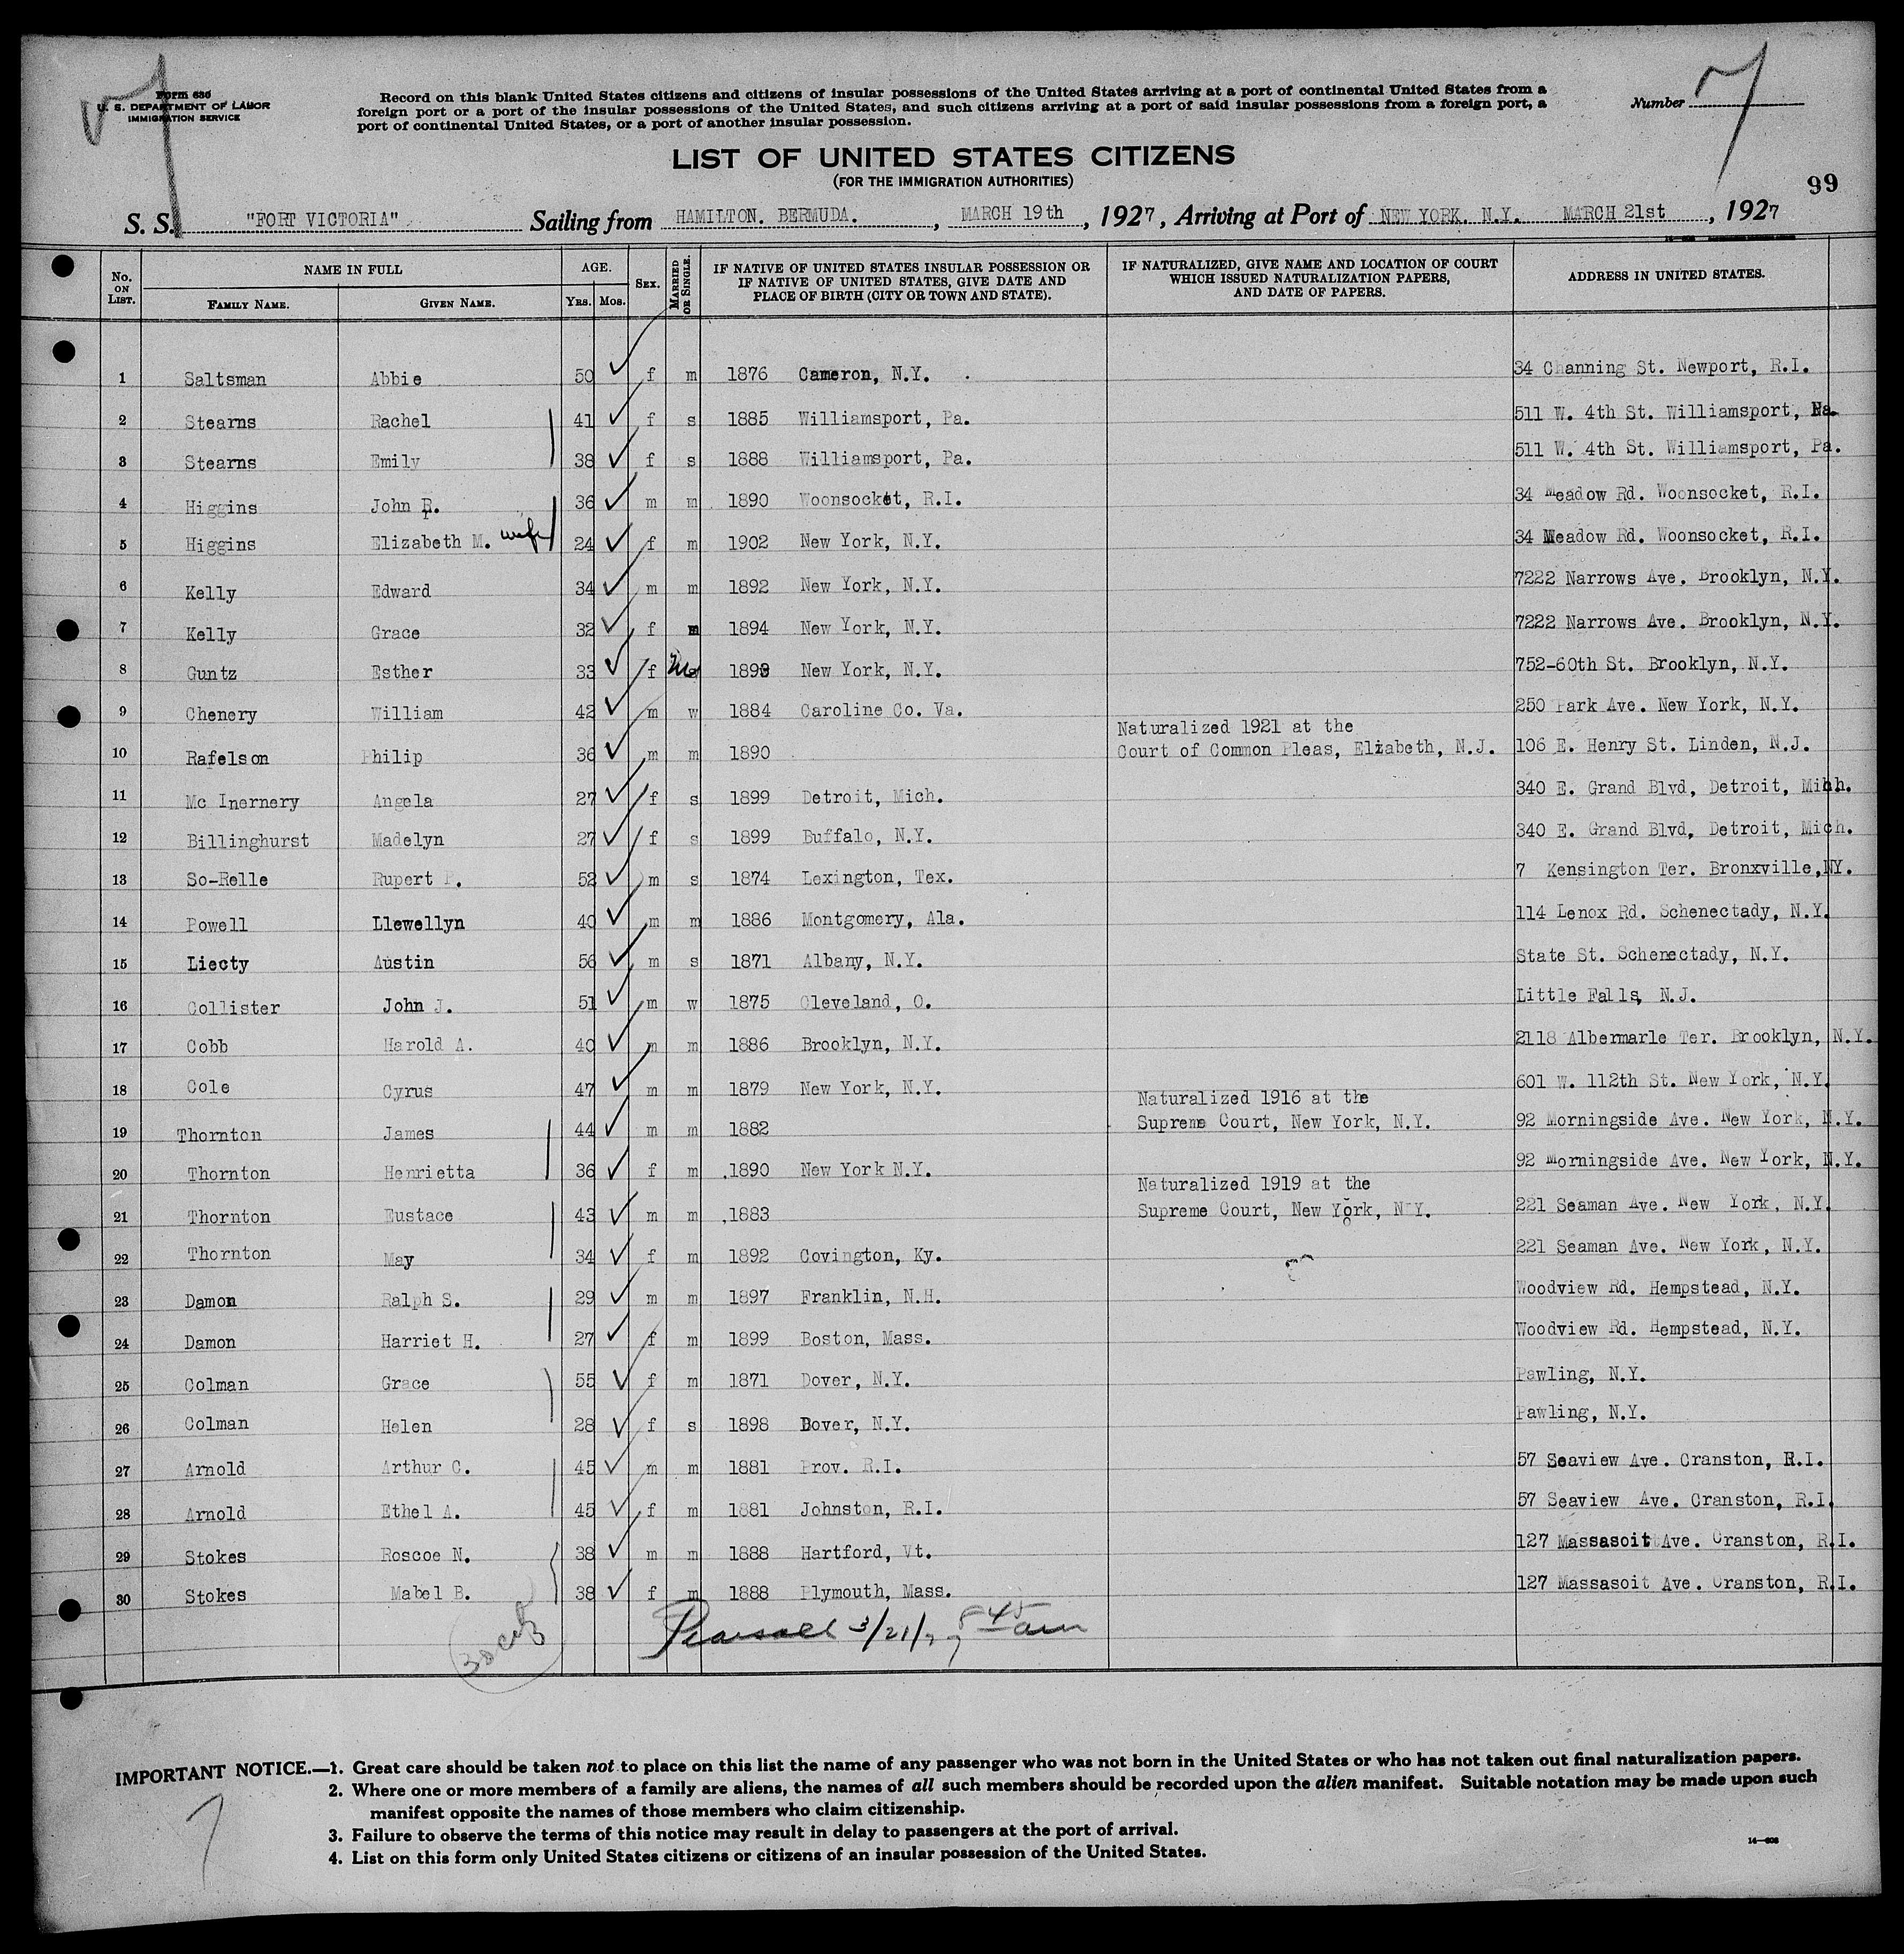 7
Form 630
U. S. DEPARTMENT OF LABOR
IMMIGRATION SERVICE
Record on this blank United States citizens and citizens of insular possessions of the United States arriving at a port of continental United States from a
foreign port or a port of the insular possessions of the United States, and such citizens arriving at a port of said insular possessions from a foreign port, a
port of continental United States, or a port of another insular possession.
Number 7
LIST OF UNITED STATES CITIZENS
(FOR THE IMMIGRATION AUTHORITIES)
99
S. S. "FORT VICTORIA" Sailing from HAMILTON. BERMUDA. , MARCH 19th , 1927, Arriving at Port of NEW YORK. N.Y. MARCH 21st , 1927
No. ON LIST. NAME IN FULL FAMILY NAME. GIVEN NAME. AGE. YRS. MOS. SEX. MARRIED OR SINGLE. IF NATIVE OF UNITED STATES INSULAR POSSESSION OR IF NATIVE OF UNITED STATES, GIVE DATE AND PLACE OF BIRTH (CITY OR TOWN AND STATE). IF NATURALIZED, GIVE NAME AND LOCATION OF COURT WHICH ISSUED NATURALIZATION PAPERS, AND DATE OF PAPERS. ADDRESS IN UNITED STATES.
1 Saltsman Abbie 50 f m 1876 Cameron, N.Y. 34 Channing St. Newport, R.I.
2 Stearns Rachel 41 f s 1885 Williamsport, Pa. 511 W. 4th St. Williamsport, Pa.
3 Stearns Emily 38 f s 1888 Williamsport, Pa. 511 W. 4th St. Williamsport, Pa.
4 Higgins John 36 m m 1890 Woonsocket, R.I. 34 Meadow Rd. Woonsocket, R.I.
5 Higgins Elizabeth M. wife 24 f m 1902 New York, N.Y. 34 Meadow Rd. Woonsocket, R.I.
6 Kelly Edward 34 m m 1892 New York, N.Y. 7222 Narrows Ave. Brooklyn, N.Y.
7 Kelly Grace 32 f m 1894 New York, N.Y. 7222 Narrows Ave. Brooklyn, N.Y.
8 Guntz Esther 33 f 1893 New York, N.Y. 752-60th St. Brooklyn, N.Y.
9 Chenery William 42 m w 1884 Caroline Co. Va. 250 Park Ave. New York, N.Y.
Naturalized 1921 at the
10 Rafelson Philip 36 m m 1890 Court of Common Pleas, Elizabeth, N.J. 106 E. Henry St. Linden, N.J.
11 Mc Inernery Angela 27 f s 1899 Detroit, Mich. 340 E. Grand Blvd, Detroit, Mihh.
12 Billinghurst Madelyn 27 f s 1899 Buffalo, N.Y. 340 E. Grand Blvd, Detroit, Mich.
13 So-Relle Rupert P. 52 m s 1874 Lexington, Tex. 7 Kensington Ter. Bronxville,NY.
14 Powell Llewellyn 40 m m 1886 Montgomery, Ala. 114 Lenox Rd. Schenectady, N.Y.
15 Liecty Austin 56 m s 1871 Albany, N.Y. State St. Schenectady, N.Y.
16 Collister John J. 51 m w 1875 Cleveland, O. Little Falls, N.J.
17 Cobb Harold A. 40 m m 1886 Brooklyn, N.Y. 2118 Albermarle Ter. Brooklyn, N.Y.
18 Cole Cyrus 47 m m 1879 New York, N.Y. 601 W. 112th St. New York, N.Y.
Naturalized 1916 at the
19 Thornton James 44 m m 1882 Supreme Court, New York, N.Y. 92 Morningside Ave. New York, N.Y.
20 Thornton Henrietta 36 f m 1890 New York N.Y. 92 Morningside Ave. New York, N.Y.
Naturalized 1919 at the
21 Thornton Eustace 43 m m 1883 Supreme Court, New York, N.Y. 221 Seaman Ave. New York, N.Y.
22 Thornton May 34 f m 1892 Covington, Ky. 221 Seaman Ave. New York, N.Y.
23 Damon Ralph S. 29 m m 1897 Franklin, N.H. Woodview Rd. Hempstead, N.Y.
24 Damon Harriet H. 27 f m 1899 Boston, Mass. Woodview Rd. Hempstead, N.Y.
25 Colman Grace 55 f m 1871 Dover, N.Y. Pawling, N.Y.
26 Colman Helen 28 f s 1898 Dover, N.Y. Pawling, N.Y.
27 Arnold Arthur C. 45 m m 1881 Prov. R.I. 57 Seaview Ave. Cranston, R.I.
28 Arnold Ethel A. 45 f m 1881 Johnston, R.I. 57 Seaview Ave. Cranston, R.I.
29 Stokes Roscoe N. 38 m m 1888 Hartford, Vt. 127 Massasoit Ave. Cranston, R.I.
30 Stokes Mabel B. 38 f m 1888 Plymouth, Mass. 127 Massasoit Ave. Cranston, R.I.
Pearsall 3/21/27 8 45 am
IMPORTANT NOTICE.—1. Great care should be taken not to place on this list the name of any passenger who was not born in the United States or who has not taken out final naturalization papers.
2. Where one or more members of a family are aliens, the names of all such members should be recorded upon the alien manifest. Suitable notation may be made upon such
manifest opposite the names of those members who claim citizenship.
3. Failure to observe the terms of this notice may result in delay to passengers at the port of arrival.
4. List on this form only United States citizens or citizens of an insular possession of the United States.
7